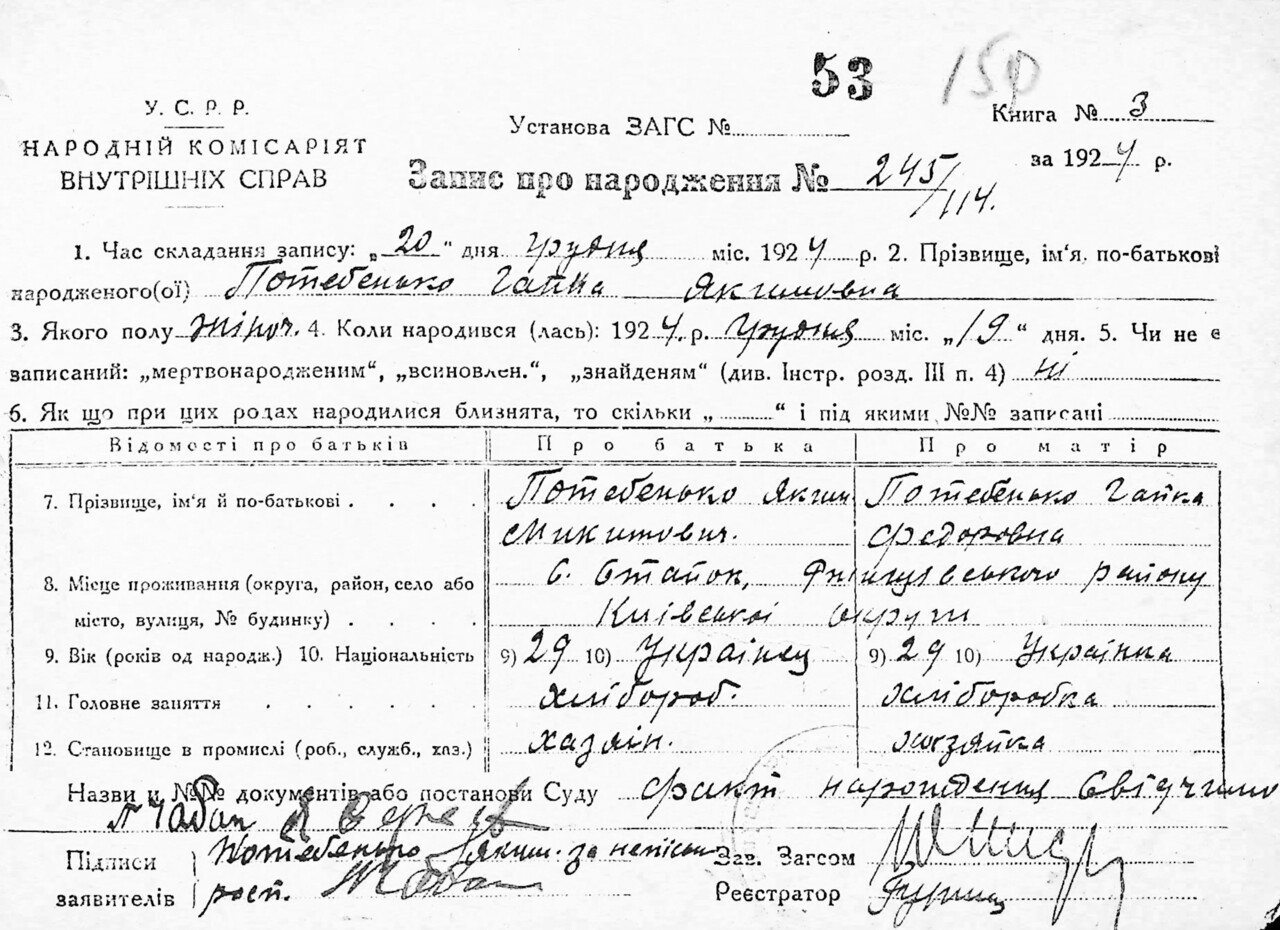 53 150
У. С. Р. Р.
НАРОДНІЙ КОМІСАРІЯТ
ВНУТРІШНІХ СПРАВ
Установа ЗАГС №
Книга № 3
за 1924 р.
Запис про народження № 245/114.
1. Час складання запису: „20“ дня грудня міс. 1924 р. 2. Прізвище, ім‘я, по-батькові
народженого(ої) Потебенько Гапка Якимовна
3. Якого полу жіноч. 4. Коли народився (лась): 1924 р. грудня міс. „19“ дня. 5. Чи не є
записаний: „мертвонародженим“, „всиновлен.“, „знайденям“ (див. Інстр. розд. III п. 4) ні
6. Як що при цих родах народилися близнята, то скільки „ “ і під якими №№ записані
Відомості про батьків Про батька Про матір
7. Прізвище, ім‘я й по-батькові . . . . Потебенько Яким Потебенько Гапка
Микитович. Федоровна
8. Місце проживання (округа, район, село або С. Стайок, району
місто, вулиця, № будинку) . . . . Київської округи
9. Вік (років од народж.) 10. Національність 9) 29 10) Українец 9) 29 10) Украінка
11. Головне заняття . . . . . хлібороб. хліборобка
12. Становище в промислі (роб., служб., хаз.) хазяін. хозяйка
Назви и №№ документів або постанови Суду факт нарождения свідчимо
Чабан
Підписи Потебенько Яким. за неписьм
заявителів рост. Чабан
Зав. Загсом
Реєстратор